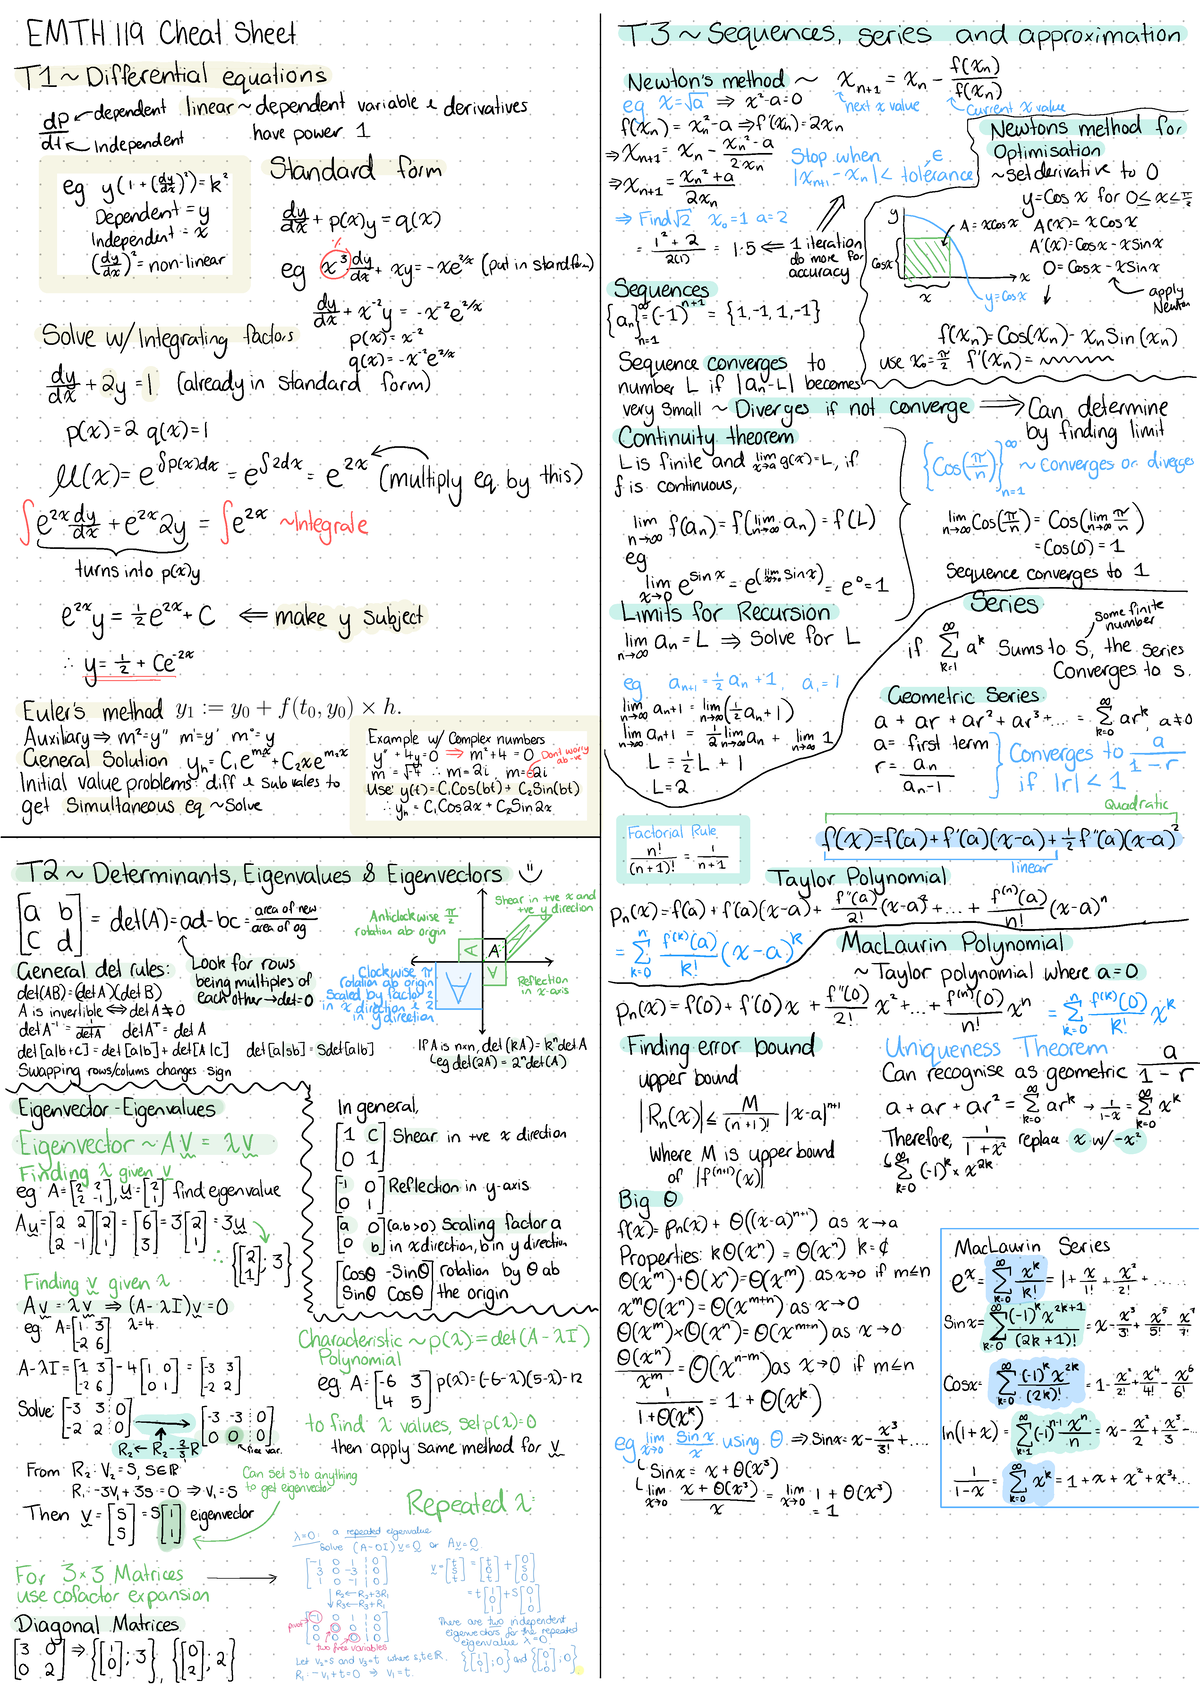 EMTH 119 Cheat Sheet
T1 ~ Differential equations
dP/dt ← dependent
← Independent
linear ~ dependent variable & derivatives
have power 1
eg y(1+(dy/dx)²)=k²
Dependent = y
Independent = x
(dy/dx)² = non-linear
Standard form
dy/dx + p(x)y = q(x)
eg x³ dy/dx + xy = -xe^(2/x) (put in stand form)
dy/dx + x⁻²y = -x⁻²e^(2/x)
p(x) = x⁻²
q(x) = -x⁻²e^(2/x)
Solve w/ Integrating factors
dy/dx + 2y = 1 (already in standard form)
p(x)=2 q(x)=1
μ(x) = e^(∫p(x)dx) = e^(∫2dx) = e^(2x) (multiply eq. by this)
∫e^(2x) dy/dx + e^(2x) 2y = ∫e^(2x) ~Integrate
turns into p(x)y
e^(2x)y = ½e^(2x) + C ⇐ make y subject
∴ y = ½ + Ce^(-2x)
Euler's method y₁ := y₀ + f(t₀, y₀) × h.
Auxiliary ⇒ m²=y'' m=y' m°=y
General Solution yₕ = C₁e^(m₁x) + C₂xe^(m₂x)
Initial value problems: diff & sub vales to
get Simultaneous eq ~Solve
Example w/ Complex numbers
y'' + 4y = 0 ⇒ m² + 4 = 0
Dont worry ab -ve
m = √-4 ∴ m = 2i, m = -2i
Use y(t) = C₁Cos(bt) + C₂Sin(bt)
∴ yₕ = C₁Cos2x + C₂Sin2x
T2 ~ Determinants, Eigenvalues & Eigenvectors
[a b; c d] = det(A) = ad-bc = area of new / area of og
Look for rows
being multiples of
each other → det=0
General det rules:
det(AB) = (detA)(detB)
A is invertible ⇔ det A ≠ 0
det A⁻¹ = 1/detA det Aᵀ = det A
det[a|b+c] = det[a|b] + det[A|c] det[a|sb] = Sdet[a|b]
Swapping rows/colums changes sign
Anticlockwise π/2
rotation ab origin
Shear in +ve x and
+ve y direction
A
A
A
A
Clockwise π
rotation ab origin
Scaled by factor 2
in x direction & 2
in y direction
Reflection
in x-axis
If A is n×n, det(kA) = kⁿdetA
↳ eg det(2A) = 2ⁿdet(A)
Eigenvector-Eigenvalues
Eigenvector ~ Av = λv
Finding λ given v
eg A=[2 2; 2 -1], u=[2; 1] find eigenvalue
Au = [2 2; 2 -1][2; 1] = [6; 3] = 3[2; 1] = 3u
∴ {[2; 1]; 3}
Finding v given λ
Av = λv ⇒ (A-λI)v = 0
eg A=[1 3; -2 6] λ=4
A-λI = [1 3; -2 6] - 4[1 0; 0 1] = [-3 3; -2 2]
Solve [-3 3 | 0; -2 2 | 0] → [-3 -3 | 0; 0 0 | 0]
R₂ ← R₂ - ⅔R
free var.
From R₂: V₂ = S, S∈ℝ
R₁: -3V₁ + 3s = 0 ⇒ V₁ = S
Then v = [S; S] = S[1; 1] eigenvector
Can set s to anything
to get eigenvector
For 3×3 Matrices
use cofactor expansion
Diagonal Matrices
[3 0; 0 2] ⇒ {[1; 0]; 3}, {[0; 2]; 2}
In general,
[1 C; 0 1] Shear in +ve x direction
[-1 0; 0 1] Reflection in y-axis
[a 0; 0 b] (a,b>0) Scaling factor a
in x direction, b in y direction
[Cosθ -Sinθ; Sinθ Cosθ] rotation by θ ab
the origin
Characteristic ~ p(λ) := det(A-λI)
Polynomial
eg A=[-6 3; 4 5] p(λ) = (-6-λ)(5-λ)-12
to find λ values, set p(λ)=0
then apply same method for v
Repeated λ:
λ=0: a repeated eigenvalue
Solve (A-0I)v=0 or Av=0
[-1 0 1 | 0; 3 0 -3 | 0; 1 0 -1 | 0]
R₂ ← R₂+3R₁
R₃ ← R₃+R₁
pivot
[-1 0 1 | 0; 0 0 0 | 0; 0 0 0 | 0]
two free variables
Let v₂=s and v₃=t where s,t∈ℝ
R₁: -v₁+t=0 ⇒ v₁=t.
v = [t; s; t] = [t; 0; t] + [0; s; 0]
= t[1; 0; 1] + s[0; 1; 0]
There are two independent
eigenvectors for the repeated
eigenvalue λ=0.
{[1; 0; 1]; 0} and {[0; 1; 0]; 0}
T3 ~ Sequences, series and approximation
Newton's method ~ xₙ₊₁ = xₙ - f(xₙ)/f(xₙ)
next x value
Current x value
eg x=√a ⇒ x²-a=0
f(xₙ) = xₙ²-a ⇒ f'(xₙ) = 2xₙ
⇒ xₙ₊₁ = xₙ - (xₙ²-a)/2xₙ
⇒ xₙ₊₁ = (xₙ²+a)/2xₙ
Stop when
|xₙ₊₁ - xₙ| < tolerance ε
⇒ Find √2 x₀=1 a=2
= (1²+2)/2(1) = 1.5 ⇐ 1 iteration
do more for
accuracy
Newtons method for
Optimisation
~set derivative to 0
y=Cos x for 0≤x≤π/2
y
Cosx
x
x
y=Cosx
A=xCosx A(x) = xCosx
A'(x) = Cosx - xSinx
0 = Cosx - xSinx
apply
Newton
f(xₙ) = Cos(xₙ) - xₙSin(xₙ)
use x₀=π/2 f'(xₙ) =
Sequences
{aₙ}^∞ₙ₌₁ = (-1)ⁿ⁺¹ = {1,-1,1,-1}
Sequence converges to
number L if |aₙ-L| becomes
very small ~ Diverges if not converge ⇒ Can determine
by finding limit
Continuity theorem
L is finite and lim x→a g(x)=L, if
f is continuous,
lim n→∞ f(aₙ) = f(lim n→∞ aₙ) = f(L)
eg
lim x→0 e^(sinx) = e^(lim x→0 sinx) = e⁰ = 1
{Cos(π/n)}^∞ₙ₌₁ ~ Converges or diverges
lim n→∞ Cos(π/n) = Cos(lim n→∞ π/n)
= Cos(0) = 1
Sequence converges to 1
Limits for Recursion
lim n→∞ aₙ = L ⇒ Solve for L
eg aₙ₊₁ = ½aₙ + 1, a₁ = 1
lim n→∞ aₙ₊₁ = lim n→∞ (½aₙ+1)
lim n→∞ aₙ₊₁ = ½ lim n→∞ aₙ + lim n→∞ 1
L = ½L + 1
L = 2
Series
some finite
number
if ∞Σk=1 aᵏ Sums to S, the Series
Converges to s.
Geometric Series
a + ar + ar² + ar³ + ... = ∞Σk=0 arᵏ, a≠0
a = first term
r = aₙ/aₙ₋₁
Converges to a/1-r
if |r| < 1
Factorial Rule
n!/(n+1)! = 1/n+1
Quadratic
f(x) = f(a) + f'(a)(x-a) + ½f''(a)(x-a)²
linear
Taylor Polynomial
pₙ(x) = f(a) + f'(a)(x-a) + f''(a)/2! (x-a)² + ... + f⁽ⁿ⁾(a)/n! (x-a)ⁿ
= nΣk=0 f⁽ᵏ⁾(a)/k! (x-a)ᵏ
MacLaurin Polynomial
~ Taylor polynomial where a=0
pₙ(x) = f(0) + f'(0)x + f''(0)/2! x² + ... + f⁽ⁿ⁾(0)/n! xⁿ = nΣk=0 f⁽ᵏ⁾(0)/k! xᵏ
Finding error bound
upper bound
|Rₙ(x)| ≤ M/(n+1)! |x-a|ⁿ⁺¹
Where M is upper bound
of |f⁽ⁿ⁺¹⁾(x)|
Uniqueness Theorem
Can recognise as geometric a/1-r
a + ar + ar² = ∞Σk=0 arᵏ → 1/1-x = ∞Σk=0 xᵏ
Therefore, 1/1+x² replace x w/ -x²
↳ ∞Σk=0 (-1)ᵏ × x²ᵏ
Big Θ
f(x) = pₙ(x) + Θ((x-a)ⁿ⁺¹) as x→a
Properties: kΘ(xⁿ) = Θ(xⁿ) k=¢
Θ(xᵐ)+Θ(xⁿ) = Θ(xᵐ) as x→0 if m≤n
xᵐΘ(xⁿ) = Θ(xᵐ⁺ⁿ) as x→0
Θ(xᵐ)×Θ(xⁿ) = Θ(xᵐ⁺ⁿ) as x→0
Θ(xⁿ)/xᵐ = Θ(xⁿ⁻ᵐ) as x→0 if m≤n
1/1+Θ(xᵏ) = 1 + Θ(xᵏ)
eg lim x→0 Sinx/x using Θ ⇒ Sinx = x - x³/3! + ....
↳ Sinx = x + Θ(x³)
↳ lim x→0 x+Θ(x³)/x = lim x→0 1 + Θ(x³)
= 1
MacLaurin Series
eˣ = ∞Σk=0 xᵏ/k! = 1 + x/1! + x²/2! + ......
Sinx = ∞Σk=0 (-1)ᵏx²ᵏ⁺¹/(2k+1)! = x - x³/3! + x⁵/5! - x⁷/7!
Cosx = ∞Σk=0 (-1)ᵏx²ᵏ/(2k)! = 1 - x²/2! + x⁴/4! - x⁶/6!
ln(1+x) = ∞Σk=1 (-1)ⁿ⁻¹ xⁿ/n = x - x²/2 + x³/3 - ...
1/1-x = ∞Σk=0 xᵏ = 1 + x + x² + x³ + ...